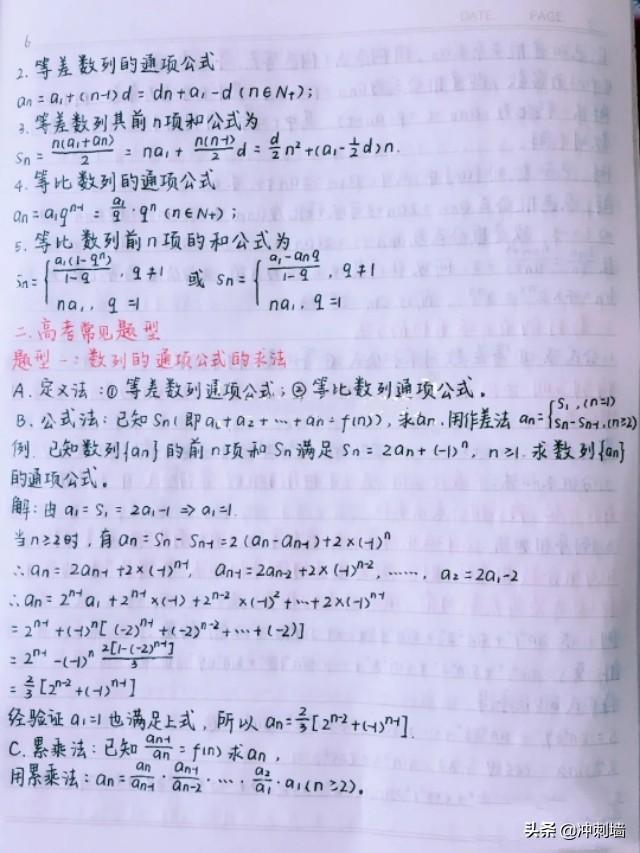 DATE PAGE
6
2. 等差数列的通项公式
an = a₁+(n-1)d = dn+a₁-d (n∈N₊);
3. 等差数列其前n项和公式为
Sn = n(a₁+an)/2 = na₁ + n(n-1)/2 d = d/2 n² + (a₁-½d)n.
4. 等比数列的通项公式
an = a₁qⁿ⁻¹ = a₁/q · qⁿ (n∈N₊);
5. 等比数列前n项的和公式为
Sn = { a₁(1-qⁿ)/(1-q), q≠1 或 Sn = { (a₁-anq)/(1-q), q≠1
na₁, q=1 na₁, q=1
二.高考常见题型
题型一:数列的通项公式的求法
A. 定义法:①等差数列通项公式;②等比数列通项公式。
B. 公式法:已知Sn(即a₁+a₂+…+an=f(n)),求an.用作差法 an={S₁,(n=1) Sn-Sn-1,(n≥2)
例. 已知数列{an}的前n项和Sn满足Sn=2an+(-1)ⁿ, n≥1.求数列{an}
的通项公式。
解:由a₁=S₁=2a₁-1⇒a₁=1.
当n≥2时,有an=Sn-Sn-1=2(an-an-1)+2×(-1)ⁿ
∴an=2an-1+2×(-1)ⁿ⁻¹, an-1=2an-2+2×(-1)ⁿ⁻², ……, a₂=2a₁-2
∴an=2ⁿ⁻¹a₁+2ⁿ⁻¹×(-1)+2ⁿ⁻²×(-1)²+…+2×(-1)ⁿ⁻¹
=2ⁿ⁻¹+(-1)ⁿ[(-2)ⁿ⁻¹+(-2)ⁿ⁻²+…+(-2)]
=2ⁿ⁻¹-(-1)ⁿ 2[1-(-2)ⁿ⁻¹]/3
=⅔[2ⁿ⁻²+(-1)ⁿ⁻¹]
经验证a₁=1也满足上式,所以an=⅔[2ⁿ⁻²+(-1)ⁿ⁻¹]
C. 累乘法:已知an-1/an=f(n)求an,
用累乘法:an=an/an-1 · an-1/an-2 · … · a₂/a₁ · a₁(n≥2)。
头条 @冲刺墙